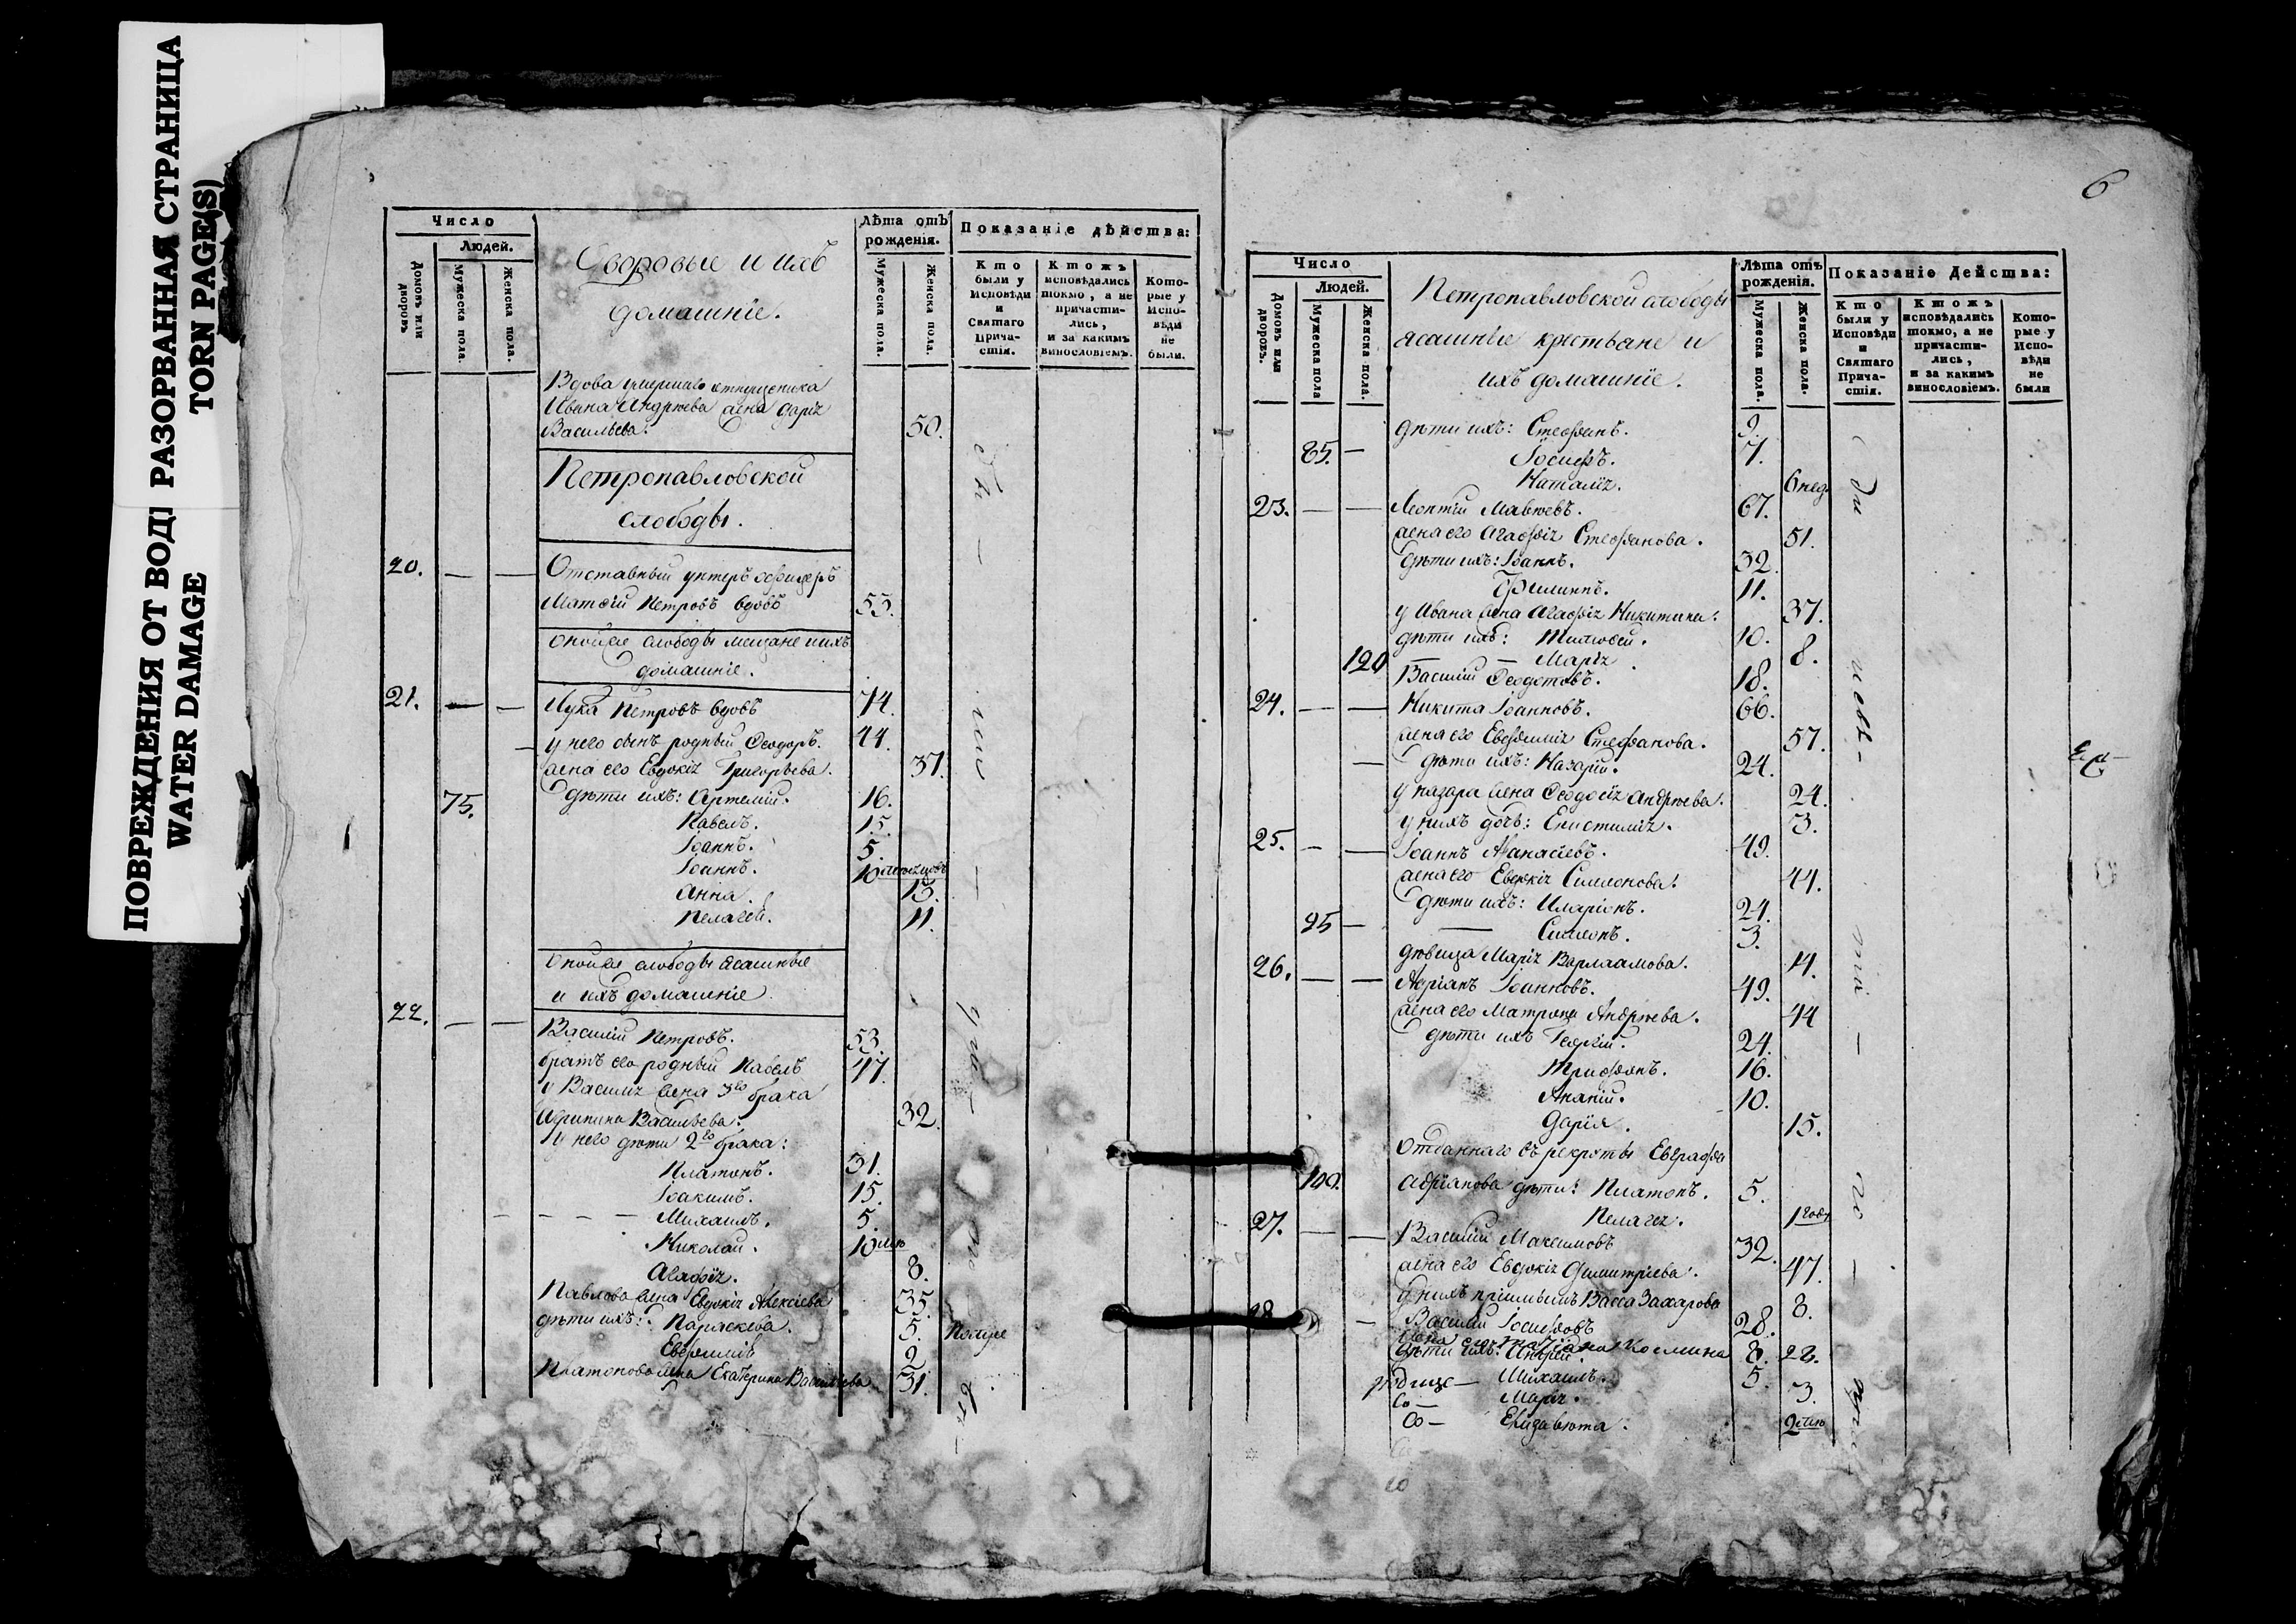 ПОВРЕЖДЕНИЯ ОТ ВОДЫ
WATER DAMAGE
РАЗОРВАННАЯ СТРАНИЦА
TORN PAGE(S)
Число
Людей.
Домовъ или дворовъ
Мужеска пола.
Женска пола.
Дворовые и ихъ
домашніе.
Лѣта отъ рожденія.
Мужеска пола.
Женска пола.
Показаніе дѣйства:
Кто были у Исповѣди и Святаго Прича-стія.
Ктожъ исповѣдались токмо, а не причасти-лись, и за какимъ винословіемъ.
Кото-рые у Испо-вѣди не были.
Вдова умершаго
Ивана Андреева жена Дарія
Васильева. 50.
Петропавловской
слободы.
20. — — Отставный унтеръ офицеръ
Матѳій Петровъ вдовъ 55.
Оной же слободы мещане и ихъ
домашніе.
21. — — Лука Петровъ вдовъ 74.
у него сынъ родный Ѳеодоръ. 44.
жена его Евдокія Григорьева. 37.
75. дѣти ихъ: Артемій. 16.
Павелъ. 15.
Іоаннъ. 5.
Іоаннъ. 10 месяцовъ
Анна. 13.
Пелагея. 11.
Оной же слободы ясашные
и ихъ домашніе
22. — — Василій Петровъ. 53.
братъ его родный Павелъ 47.
у Василія жена 3го брака
Агрипина Васильева. 32.
у него дѣти 2го брака:
Платонъ. 31.
Іоакимъ. 15.
— — — — Михаилъ. 5.
Николай. 10 мѣ
Агафія. 8.
Павлова жена Евдокія Алексіева 35.
дѣти ихъ: Параскева. 5.
Евфимія 2
Платонова жена Екатерина Васильева 31.
6
Число
Людей.
Домовъ или дворовъ.
Мужеска пола
Женска пола.
Петропавловской слободы
ясашные крестьяне и
ихъ домашніе.
Лѣта отъ рожденія.
Мужеска пола.
Женска пола.
Показаніе Действа:
Кто были у Исповѣди и Святаго Прича-стія.
Ктожъ исповѣдались токмо, а не причасти-лись, и за какимъ винословіемъ.
Кото-рые у Испо-вѣди не были
дѣти ихъ: Стефанъ. 9.
85. — Іосифъ. 7.
Наталія. 6 нед.
23. — — Леонтій Мавѣевъ. 67.
жена его Агафія Стефанова. 51.
дѣти ихъ: Іоаннъ. 32.
Филиппъ. 11.
у Ивана жена Агафія Никитина. 37.
дѣти ихъ: Тимофей. 10.
120 — — Марія 8.
Василій Ѳеодотовъ. 18.
24. — — Никита Іоанновъ. 66.
жена его Евфимія Стефанова. 57.
— дѣти ихъ: Назарій. 24.
у Назара жена Ѳеодосія Андреева. 24.
у нихъ дочь: Епистимія. 3.
25. — — Іоаннъ Афанасіевъ. 49.
жена его Евдокія Симеонова. 44.
дѣти ихъ: Иларіонъ. 24.
95 — — Симеонъ. 3.
дѣвица Марія Варлаамова. 4.
26. — — Адріанъ Іоанновъ. 49.
жена его Матрона Андреева. 44
дѣти ихъ Георгій. 24.
Трифонъ. 16.
Ананій. 10.
Дарія. 15.
Отданнаго въ рекруты Евграфа
100. Адріанова дѣти: Платонъ. 5.
Пелагея. 1 годъ
27. — — Василій Максимовъ 32.
жена его Евдокія Димитріева. 47.
у нихъ пріимышъ Васса Захарова 8.
28 — Василій Іосифовъ 28.
жена его Татіана Космина 28.
дѣти ихъ: Андрей. 8.
Михаилъ. 5.
Марія. 3.
Елизавета. 2 мѣ